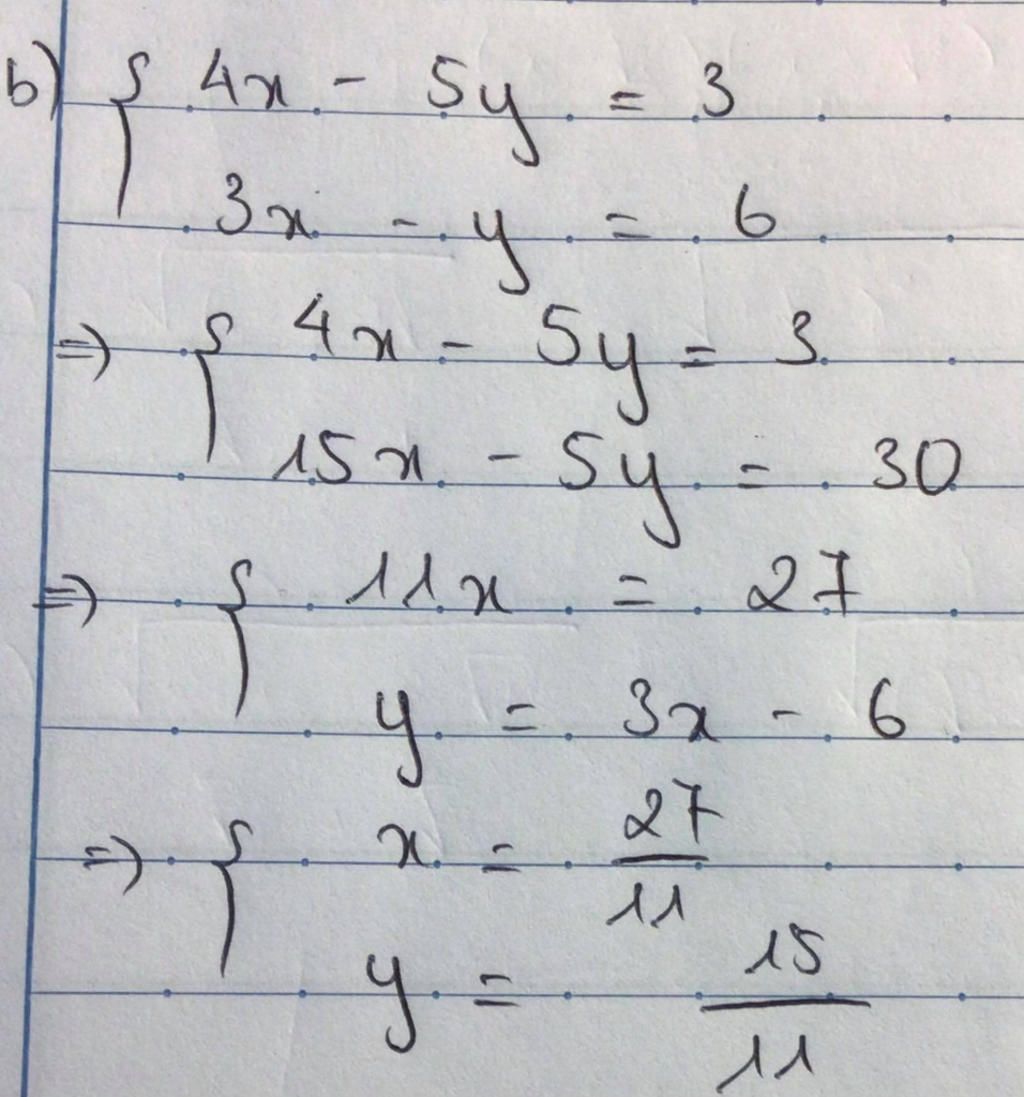 b) { 4x - 5y = 3
3x - y = 6
=> { 4x - 5y = 3
15x - 5y = 30
=> { 11x = 27
y = 3x - 6
=> { x = 27/11
y = 15/11